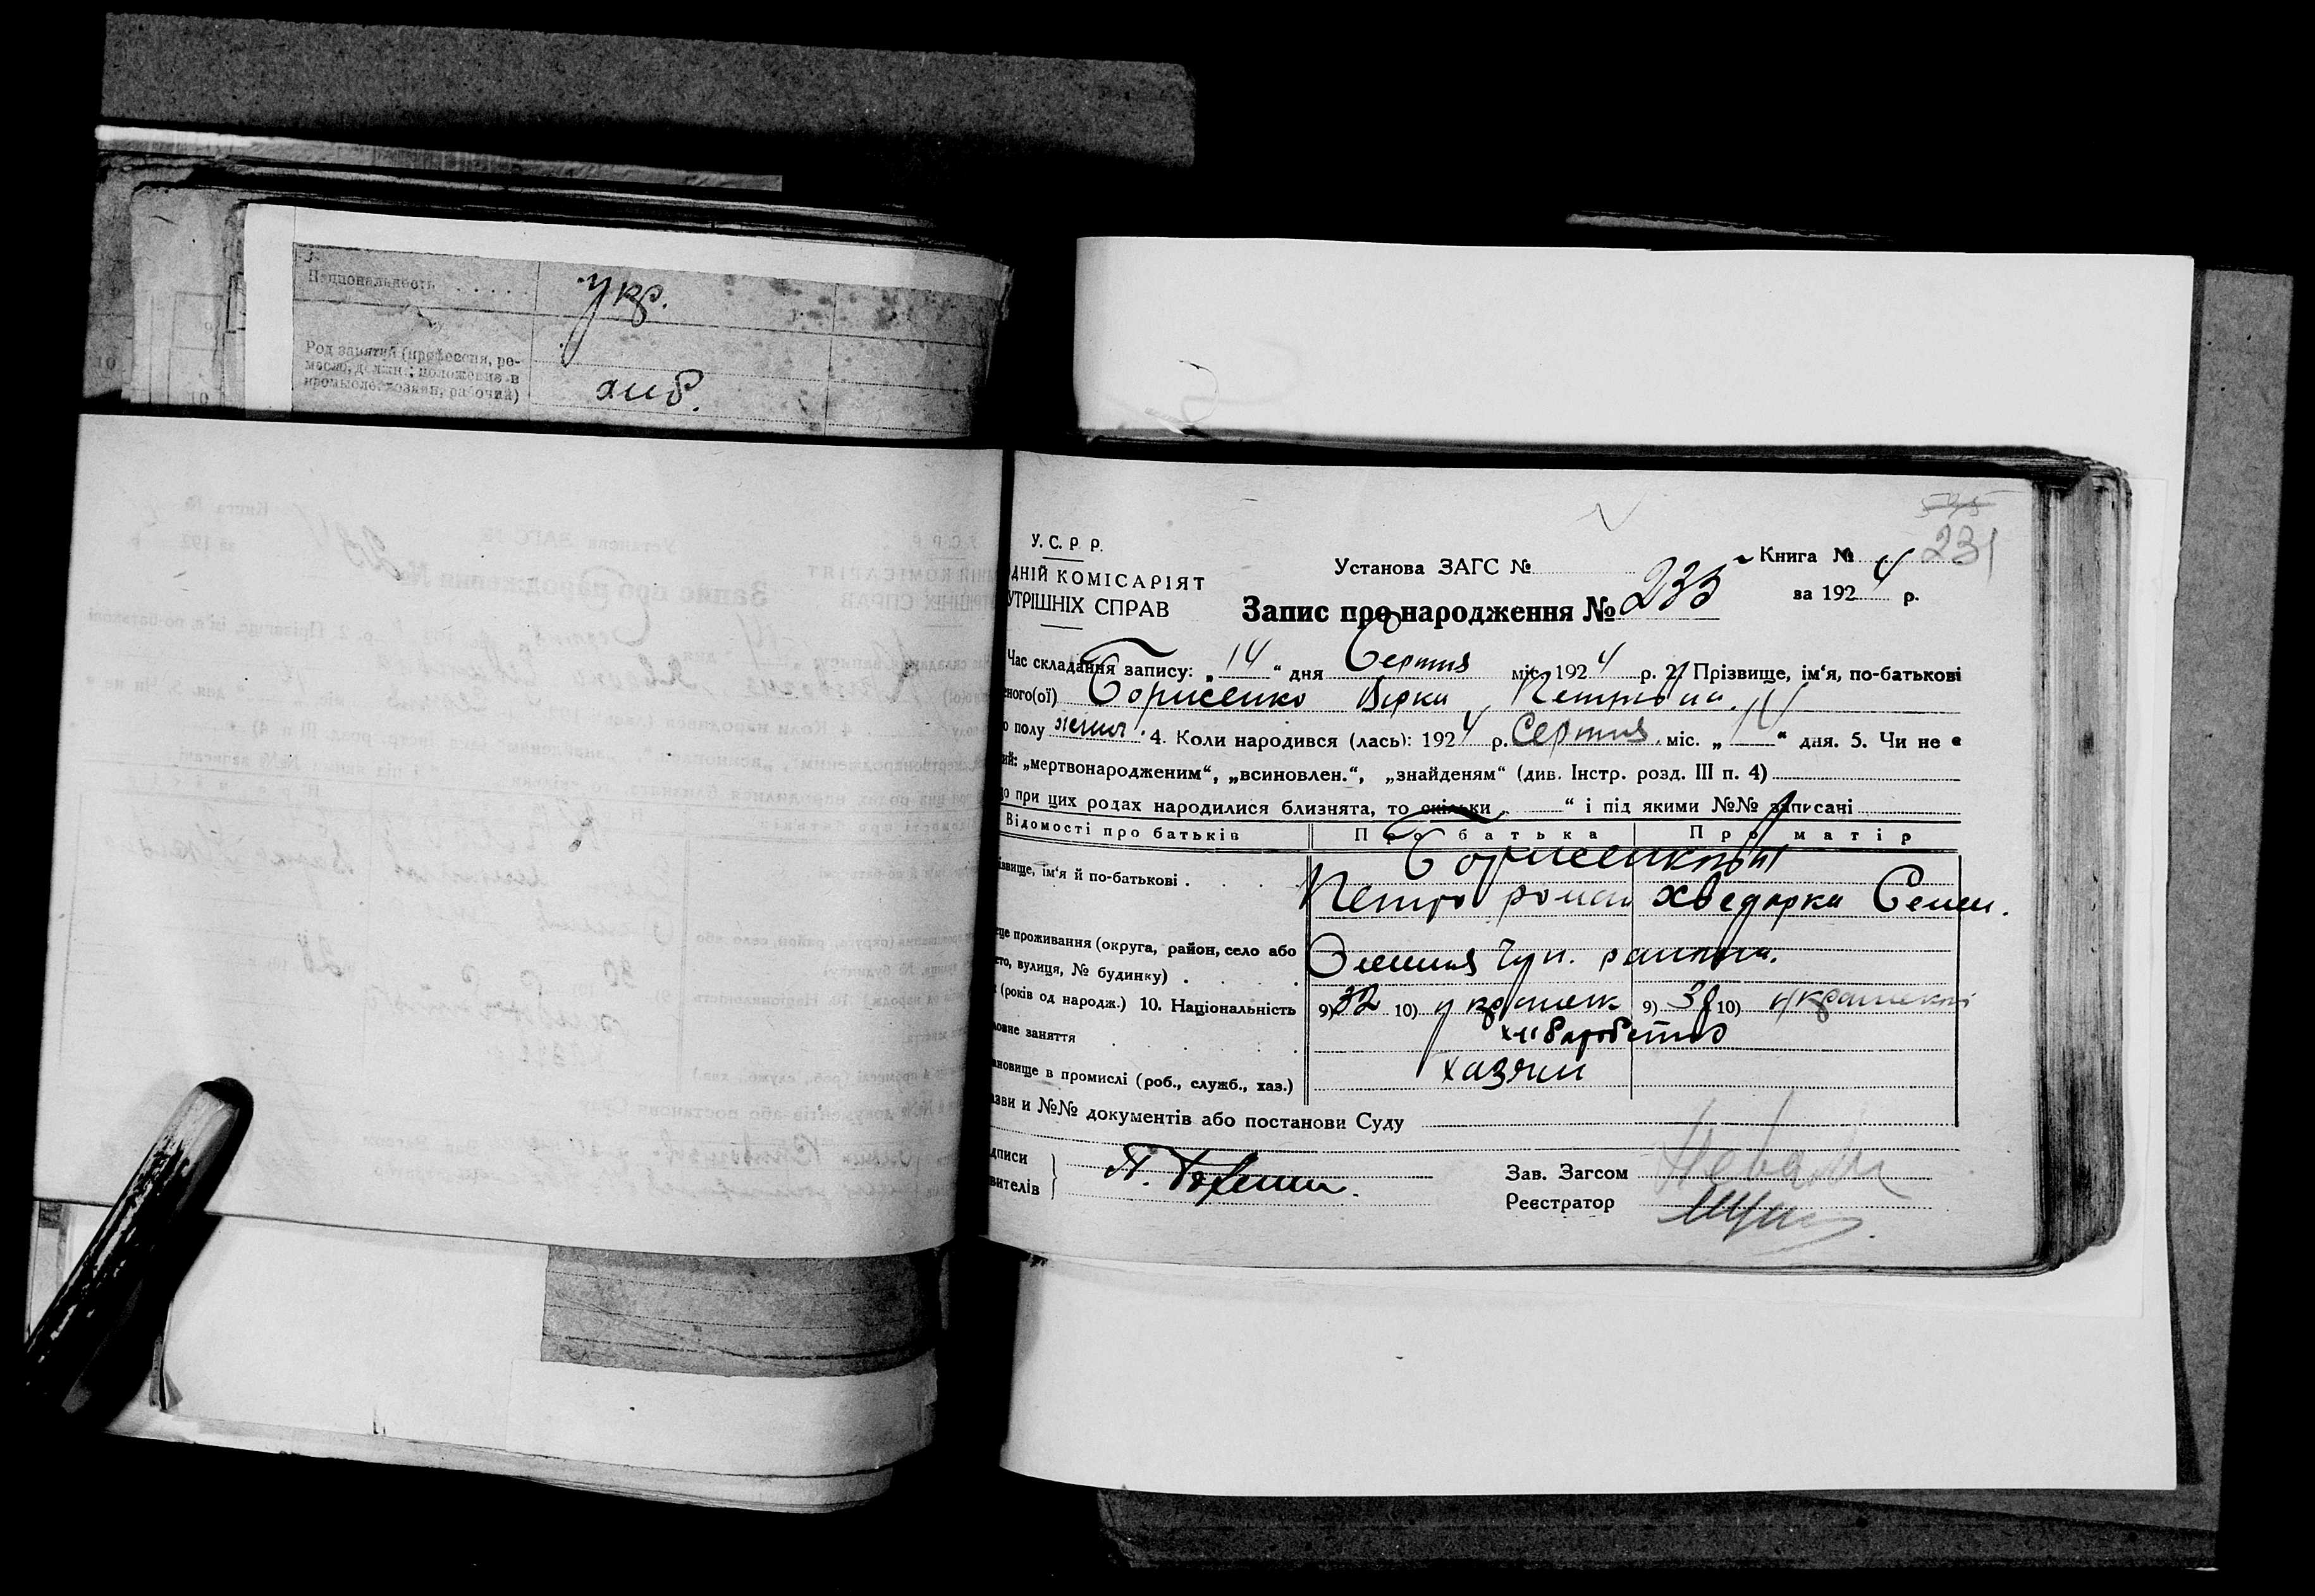 Национальность . . . . . укр.
Род занятий (профессия, ре-
месло, должн.; положение в
промысле: хозяин, рабочий)
хліб.
10
10
545
231
У. С. Р. Р.
ДНІЙ КОМІСАРІЯТ
УТРІШНІХ СПРАВ
Установа ЗАГС №
Книга №
за 1924 р.
Запис про народження № 235
Час складання запису: „14“ дня Серпня міс. 1924 р. 2. Прізвище, ім‘я, по-батькові
еного(ої) Борисенко Вірка Петровна
о полу женч. 4. Коли народився (лась): 1924 р. Серпня міс. „14“ дня. 5. Чи не є
ий: „мертвонародженим“, „всиновлен.“, „знайденям“ (див. Інстр. розд. III п. 4)
о при цих родах народилися близнята, то скільки „ “ і під якими №№ записані
Відомості про батьків Про батька Про матір
ізвище, ім‘я й по-батькові . Борисенко
Петро роман Хведорка Семен.
це проживання (округа, район, село або
то, вулиця, № будинку) . Чуп. району.
(років од народж.) 10. Національність 9) 32 10) українск 9) 38 10)
овне заняття хліборобство
новище в промислі (роб., служб., хаз.) хазяин
зви и №№ документів або постанови Суду
дписи
вителів
П. Борисен
Зав. Загсом
Реєстратор